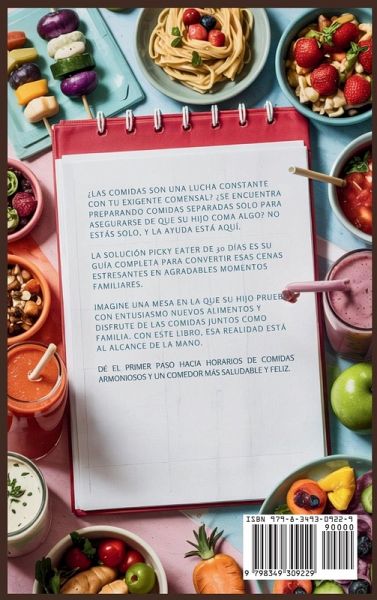 ¿LAS COMIDAS SON UNA LUCHA CONSTANTE
CON TU EXIGENTE COMENSAL? ¿SE ENCUENTRA
PREPARANDO COMIDAS SEPARADAS SOLO PARA
ASEGURARSE DE QUE SU HIJO COMA ALGO? NO
ESTÁS SOLO, Y LA AYUDA ESTÁ AQUÍ.
LA SOLUCIÓN PICKY EATER DE 30 DÍAS ES SU
GUÍA COMPLETA PARA CONVERTIR ESAS CENAS
ESTRESANTES EN AGRADABLES MOMENTOS
FAMILIARES.
IMAGINE UNA MESA EN LA QUE SU HIJO PRUEB
CON ENTUSIASMO NUEVOS ALIMENTOS Y
DISFRUTE DE LAS COMIDAS JUNTOS COMO
FAMILIA. CON ESTE LIBRO, ESA REALIDAD ESTÁ
AL ALCANCE DE LA MANO.
DÉ EL PRIMER PASO HACIA HORARIOS DE COMIDAS
ARMONIOSOS Y UN COMEDOR MÁS SALUDABLE Y FELIZ.
ISBN 979-8-3493-0922-9
90000
9 798349 309229